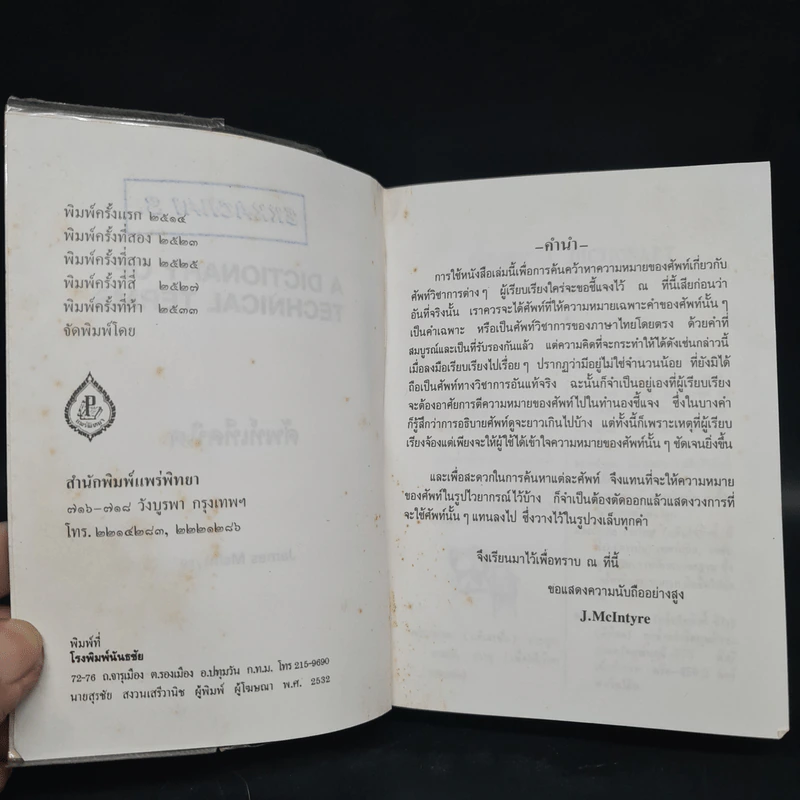 พิมพ์ครั้งแรก ๒๕๑๔
พิมพ์ครั้งที่สอง ๒๕๒๓
พิมพ์ครั้งที่สาม ๒๕๒๕
พิมพ์ครั้งที่สี่ ๒๕๒๗
พิมพ์ครั้งที่ห้า ๒๕๓๓
จัดพิมพ์โดย
สำนักพิมพ์แพร่พิทยา
๗๑๖-๗๑๘ วังบูรพา กรุงเทพฯ
โทร. ๒๒๑๔๒๘๓, ๒๒๒๑๒๘๖
พิมพ์ที่
โรงพิมพ์นันธชัย
72-76 ถ.จารุเมือง ต.รองเมือง อ.ปทุมวัน ก.ท.ม. โทร 215-9690
นายสุรชัย สงวนเสรีวานิช ผู้พิมพ์ ผู้โฆษณา พ.ศ. 2532
-คำนำ-
การใช้หนังสือเล่มนี้เพื่อการค้นคว้าหาความหมายของศัพท์เกี่ยวกับ
ศัพท์วิชาการต่าง ๆ ผู้เรียบเรียงใคร่จะขอชี้แจงไว้ ณ ที่นี้เสียก่อนว่า
อันที่จริงนั้น เราควรจะได้ศัพท์ที่ให้ความหมายเฉพาะคำของศัพท์นั้น ๆ
เป็นคำเฉพาะ หรือเป็นศัพท์วิชาการของภาษาไทยโดยตรง ด้วยคำที่
สมบูรณ์และเป็นที่รับรองกันแล้ว แต่ความคิดที่จะกระทำให้ได้ดังเช่นกล่าวนี้
เมื่อลงมือเรียบเรียงไปเรื่อย ๆ ปรากฏว่ามีอยู่ไม่ใช่จำนวนน้อย ที่ยังมิได้
ถือเป็นศัพท์ทางวิชาการอันแท้จริง ฉะนั้นก็จำเป็นอยู่เองที่ผู้เรียบเรียง
จะต้องอาศัยการตีความหมายของศัพท์ไปในทำนองชี้แจง ซึ่งในบางคำ
ก็รู้สึกว่าการอธิบายศัพท์ดูจะยาวเกินไปบ้าง แต่ทั้งนี้ก็เพราะเหตุที่ผู้เรียบ
เรียงจ้องแต่เพียงจะให้ผู้ใช้ได้เข้าใจความหมายของศัพท์นั้น ๆ ชัดเจนยิ่งขึ้น
และเพื่อสะดวกในการค้นหาแต่ละศัพท์ จึงแทนที่จะให้ความหมาย
ของศัพท์ในรูปไวยากรณ์ไว้บ้าง ก็จำเป็นต้องตัดออกแล้วแสดงวงการที่
จะใช้ศัพท์นั้น ๆ แทนลงไป ซึ่งวางไว้ในรูปวงเล็บทุกคำ
จึงเรียนมาไว้เพื่อทราบ ณ ที่นี้
ขอแสดงความนับถืออย่างสูง
J.McIntyre